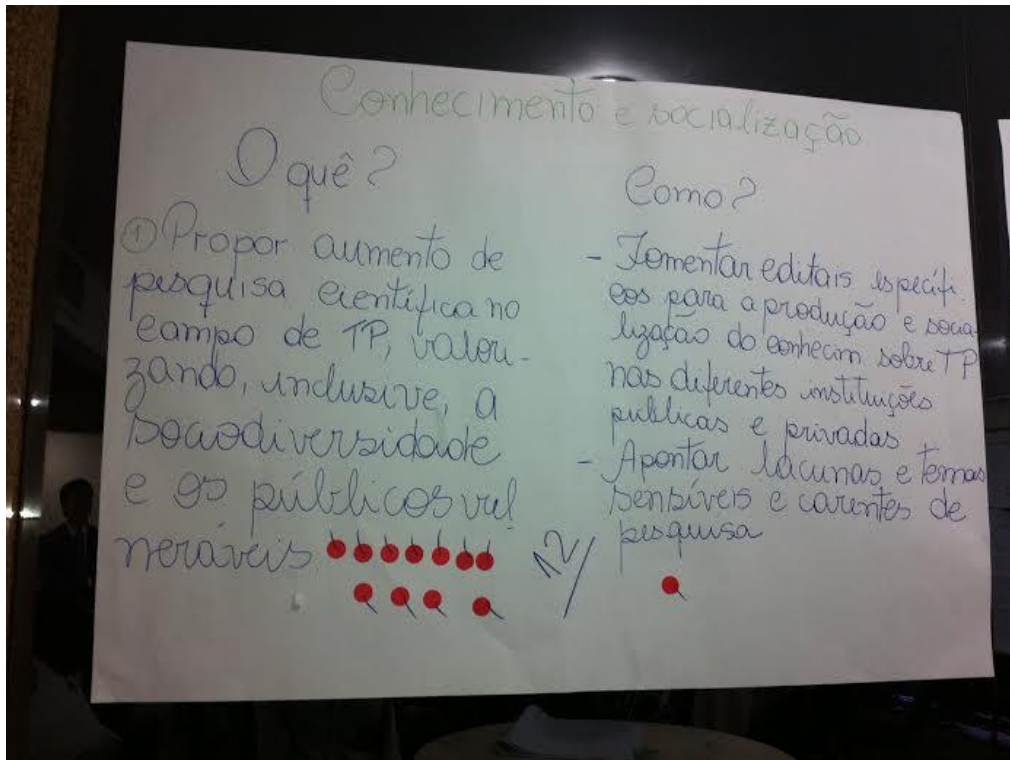 Conhecimento e socialização
O quê?
① Propor aumento de
pesquisa científica no
campo de TP, valori-
zando, inclusive, a
sociodiversidade
e os públicos vul
neráveis
12
Como?
- Fomentar editais específi-
cos para a produção e socia-
lização do conhecim sobre TP
nas diferentes instituições
públicas e privadas
- Apontar lacunas e temas
sensíveis e carentes de
pesquisa